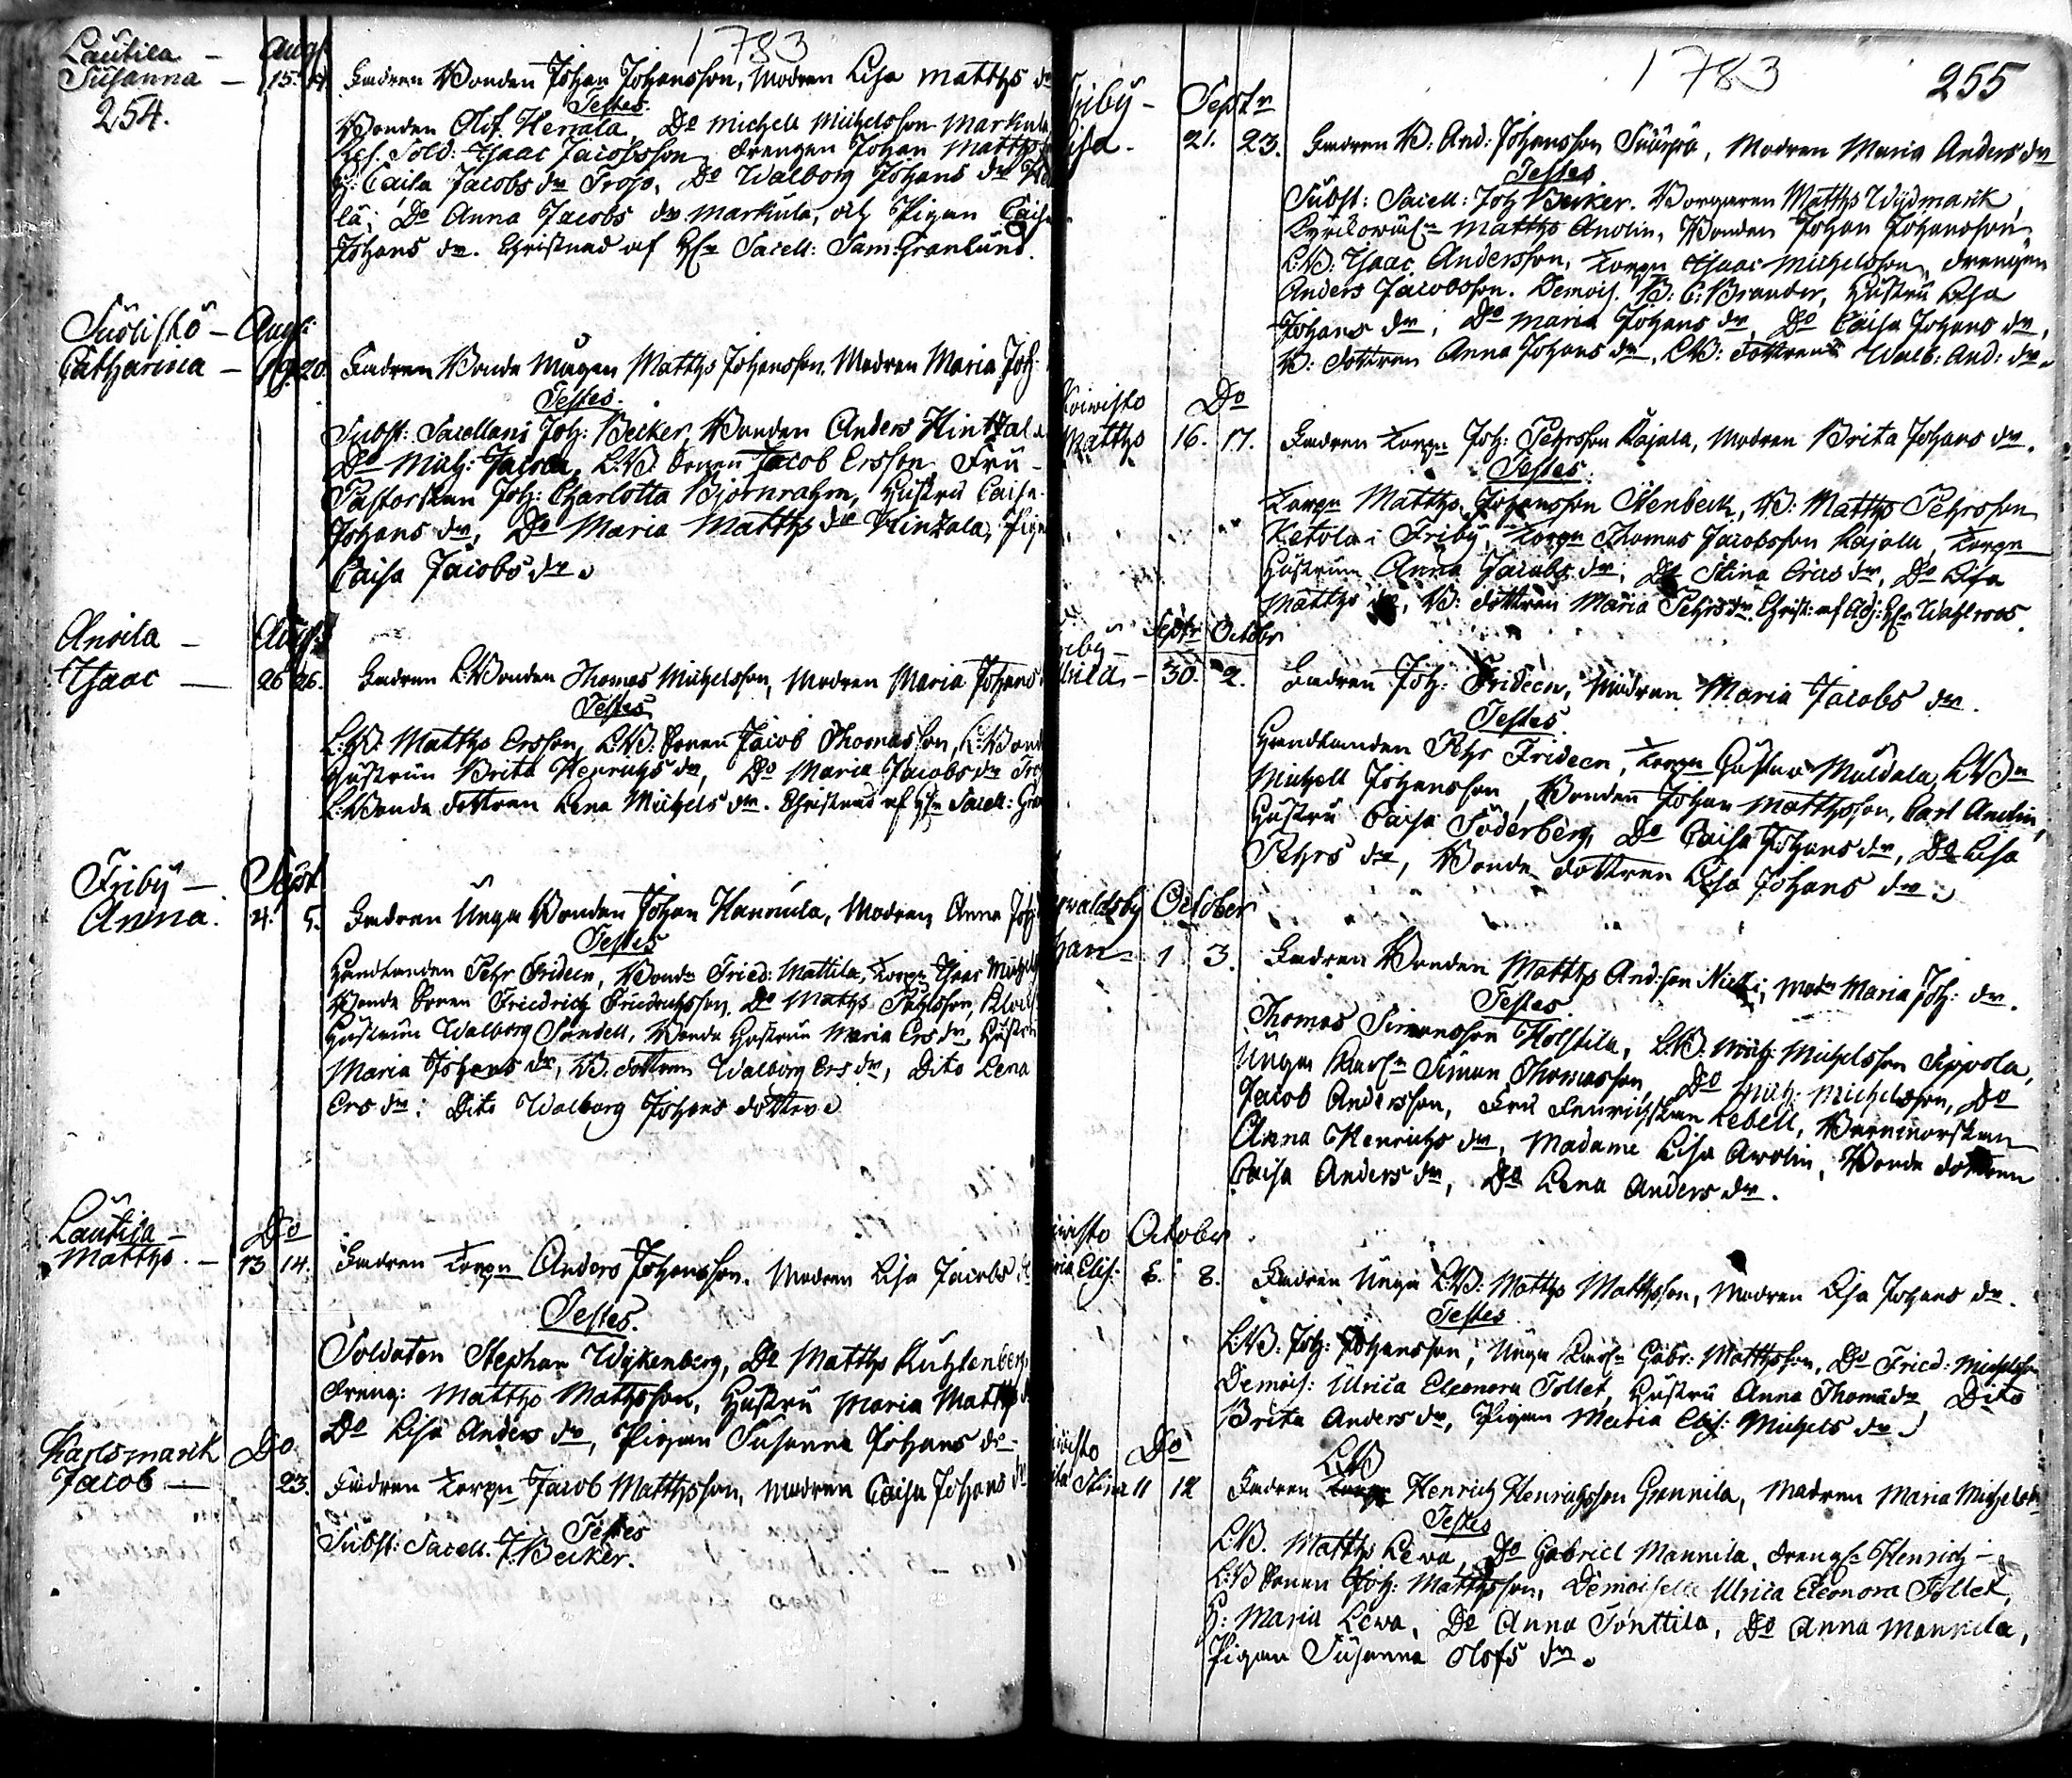 1783
Lautila - Augst
Susanna - 15. Fadren Bonden Johan Johansson, Modren Lisa Matthsdr
254.
Testes.
Bonden Olof Herrala, Do Michell Michelsson Markula
Res. Sold: Isaac Jacobsson, Drengen Johan Matths
H: Caisa Jacobs dr Trop, Do Walborg Johans dr
la; Do Anna Jacobs dr Markula, och Pigan Caisa
Johans dr. Christnad af Hr Sacell: Sam: Granlund.
Suolisto - Augst:
Catharina - 19. 20. Fadren Bonde Mågen Matths Johansson, Modren Maria Joh:
Testes.
Subst: Sacellani Joh: Becker, Bonden Anders Hintzala
Do Mich: L:B. Sonen Jacob Ersson, Fru
Pastorskan Joh: Charlotta Björnrahm, Hustru Caisa
Johans dr, Do Maria Matths dr Hintzala, Pigan
Caisa Jacobs dr.
Anoila - Augst
Isaac - 26 26. Fadren L:Bonden Thomas Michelsson, Modren Maria Johans
Testes
L:B: Matths Ersson, L:B: Sonen Jacob Thomasson, L:Bond
Hustrun Brita Henrichs dr, Do Maria Jacobs dr
L:Bonde Dottren Lena Michels dr. Christnad af Hr Sacell: Gra
Friby - Sept
Anna. 4. 5. Fadren Unga Bonden Johan Hannula, Modren Anna Joh
Testes
Handlanden Pehr Frideen, Bondn Fried: Mattila, Torpn Isaac Michels
Bonde Sonen Friedrich Friedrichsson, Do Matths
Hustrun Walborg Sundell, Bonde Hustrun Maria Ers dr, Hustru
Maria Johans dr, B. Dottren Walborg Ers dr, Dito Lena
Ers dr: Dito Walborg Johans dotter
Lautila - Do
Matths. - 13 14. Fadren Torpn Anders Johansson. Modren Lisa Jacobs dr
Testes.
Soldaten Stephan Wykenberg, Do Matths Kuhlenberg
Dreng: Matths Mathsson, Hustru Maria Matths d
Do Lisa Anders dr, Pigan Susanna Johans dr
Karlsmark Do
Jacob - 23. Fadren Torpn Jacob Matthsson, Modren Caisa Johans dr
Testes
Subst: Sacell. J. Becker.
1783 255
Friby - Septr
Lisa. 21. 23. Fadren B: And: Johansson Suurpä, Modren Maria Anders dr
Testes
Subst: Sacell: Joh Becker. Borgaren Matths Wydmarck,
Matths Anolin, Bonden Johan Johansson,
L:B: Isaac Andersson, Torpn Isaac Michelsson, Drengen
Anders Jacobsson. Demois. B: C: Brander, Hustru Lisa
Johans dr, Do Maria Johans dr, Do Caisa Johans dr,
B: Dottren Anna Johans dr, L:B: Dottren Walb: And: dr.
Koivisto Do
Matths 16. 17. Fadren Torpn Joh: Pehrsson Kajala, Modren Brita Johans dr.
Testes.
Torpn Matths Johansson Stenbeck, B: Matths Pehrsson
Ketola i Friby, Torpn Thomas Jacobsson Kajala, Torpn
Hustrun Anna Jacobs dr, Do Stina Erics dr, Do Lisa
Matths dr, B: Dottren Maria Pehrs dr. Christ: af Adj: Hr Wahlroos.
Friby - Septr Octobr
Ulrica - 30. 2. Fadren Joh: Frideen, Modren Maria Jacobs dr.
Testes.
Handlanden Pehr Frideen, Torpn Gustav Muldala, L:Bn
Michell Johansson, Bonden Johan Matthsson, Carl Anolin,
Hustru Caisa Söderberg, Do Caisa Johans dr, Do Lisa
Pehrs dr, Bonde Dottren Lisa Johans dr.
waldsby October
han - 1 3. Fadren Bonden Matths And:son Nicki, Modr Maria Joh: dr.
Testes
Thomas Simonsson Holstila, L:B: Mich: Michelsson Sippola,
Unga Karln Simon Thomasson, Do Mich: Michelsson, Do
Jacob Andersson, Fru Fenrichskan Lebell,
Anna Henrichs dr, Madame Lisa Awolin, Bonde Dottren
Caisa Anders dr, Do Lena Anders dr.
visto October
ria Elis: 6. 8. Fadren Unga L:B: Matths Matthsson, Modren Lisa Johans dr.
Testes
L:B: Joh: Johansson, Unga Karln Gabr: Matthsson, Do Fried: Michelsson
Demois: Ulrica Eleonora Tollet, Hustru Anna Thomædr Dito
Brita Anders dr, Pigan Maria Elis: Michels dr.
visto Do
Stina 11 12 Fadren LB Henrich Henrichsson Grannila, Modren Maria Michelsdr
Testes
L:B. Matths Lewa, Do Gabriel Mannila, Drengn Henrich
L:B Sonen Joh: Matthsson, Demoiselle Ulrica Eleonora Tollet,
H: Maria Lewa, Do Anna Tonttila, Do Anna Mannila,
Pigan Susanna Olofs dr.